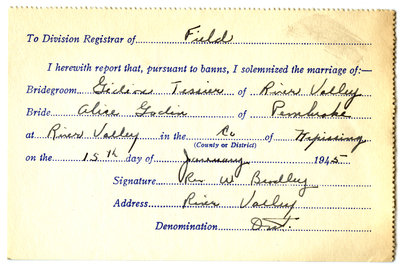 To Division Registrar of Field
I herewith report that, pursuant to banns, I solemnized the marriage of:—
Bridegroom Gideon Tessier of River Valley
Bride Alice Godin of Pembroke
at River Valley in the Co of Nipissing
(County or District)
on the 15th day of January 1945
Signature Rev W Bradley
Address River Valley
Denomination Ont.